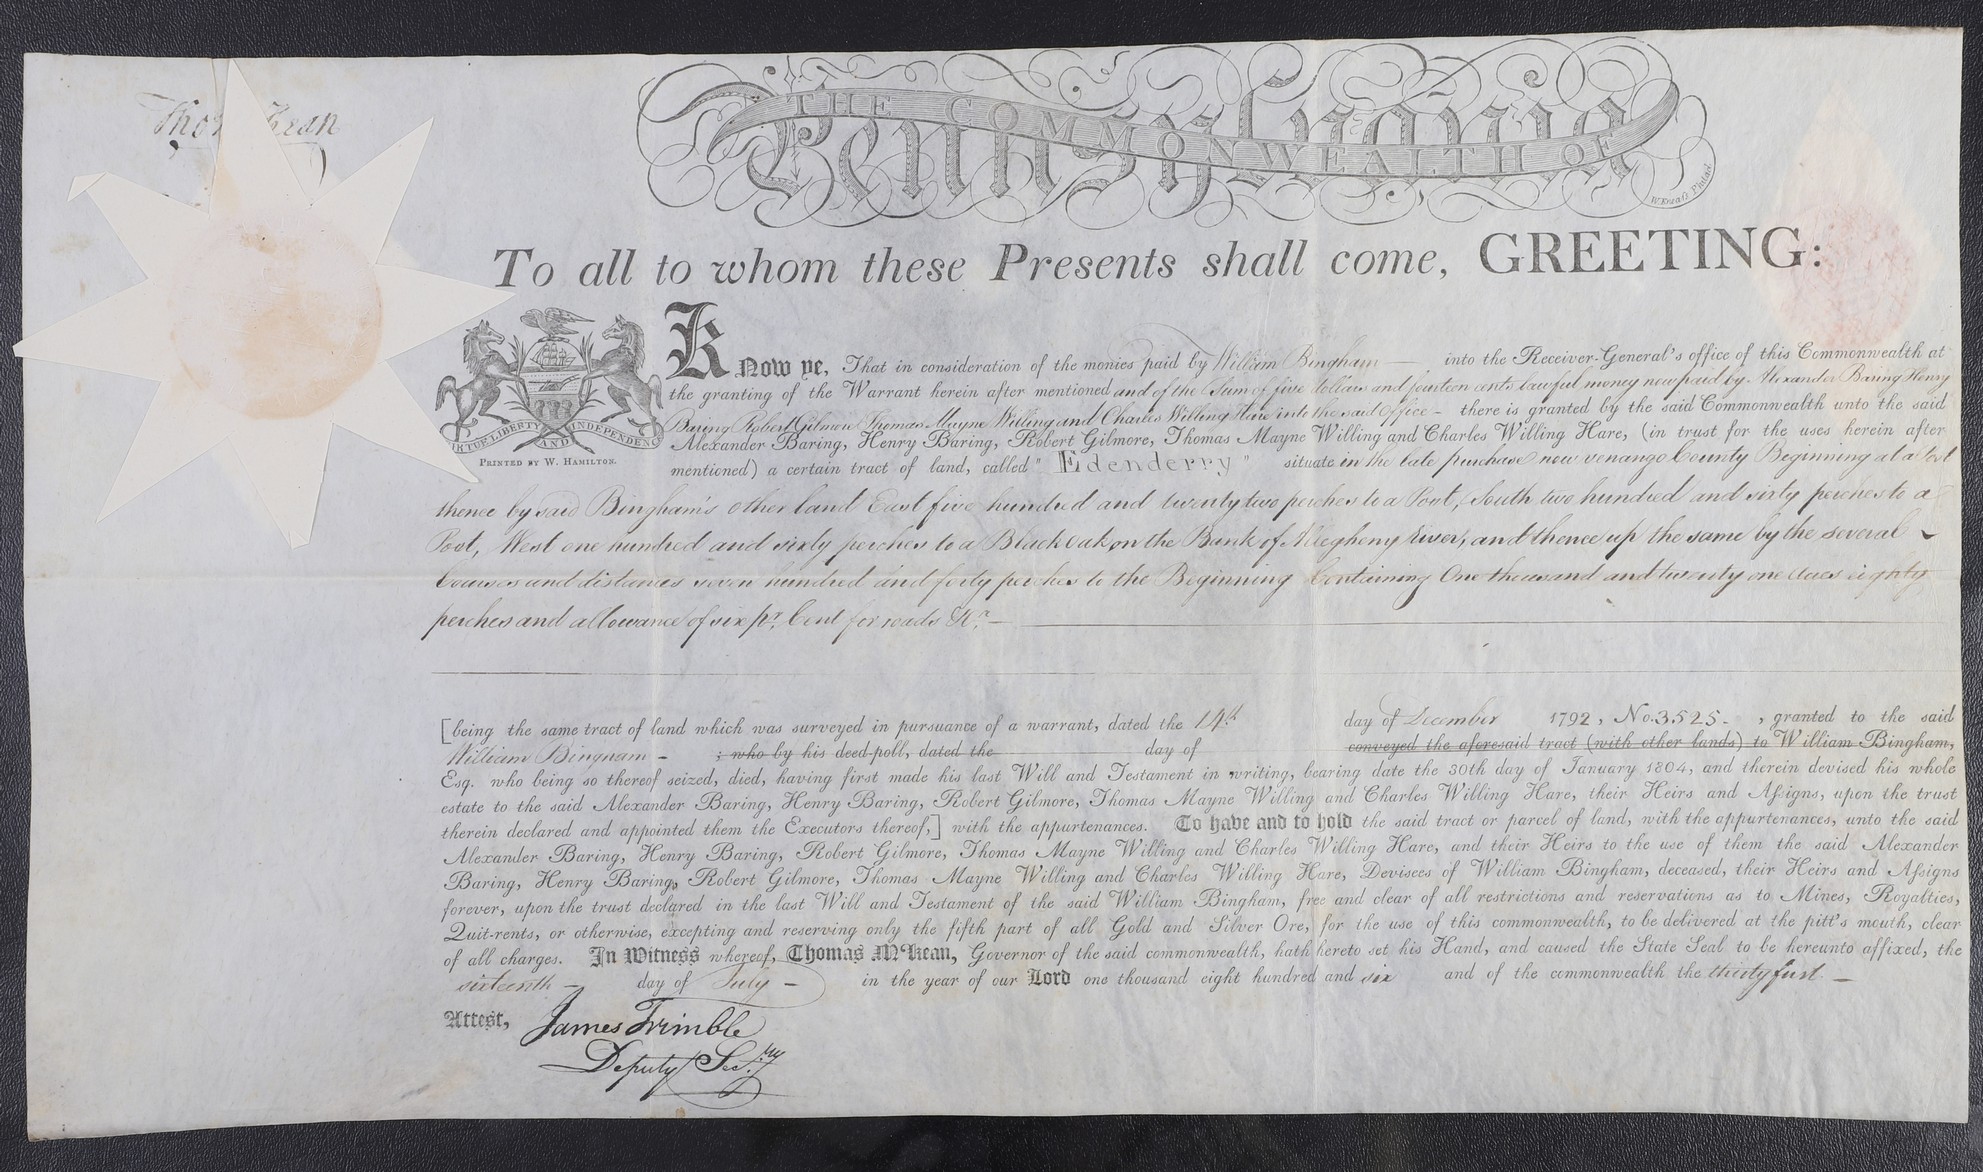 Tho Kean
THE COMMONWEALTH OF
Pennsylvania
W. Kneass Philad.
To all to whom these Presents shall come, GREETING:
VIRTUE LIBERTY AND INDEPENDENCE
PRINTED BY W. HAMILTON.
KNow ye, That in consideration of the monies paid by William Bingham — into the Receiver-General's office of this Commonwealth at
the granting of the Warrant herein after mentioned and of the Sum of five dollars and fourteen cents lawful money now paid by Alexander Baring Henry
Baring Robert Gilmore Thomas Mayne Willing and Charles Willing Hare into the said Office – there is granted by the said Commonwealth unto the said
Alexander Baring, Henry Baring, Robert Gilmore, Thomas Mayne Willing and Charles Willing Hare, (in trust for the uses herein after
mentioned) a certain tract of land, called " Edenderry " situate in the late purchase now venango County Beginning at a Post
thence by said Bingham's other land East five hundred and twenty two perches to a Post, South two hundred and sixty perches to a
Post, West one hundred and sixty perches to a Black oak on the Bank of Allegheny River, and thence up the same by the several
Courses and distances seven hundred and forty perches to the Beginning Containing One thousand and twenty one acres eighty
perches and allowance of six pr. Cent for roads &c. —
[being the same tract of land which was surveyed in pursuance of a warrant, dated the 14th day of December 1792, No. 3525 – , granted to the said
William Bingham – ; who by his deed-poll, dated the day of conveyed the aforesaid tract (with other lands) to William Bingham,
Esq. who being so thereof seized, died, having first made his last Will and Testament in writing, bearing date the 30th day of January 1804, and therein devised his whole
estate to the said Alexander Baring, Henry Baring, Robert Gilmore, Thomas Mayne Willing and Charles Willing Hare, their Heirs and Aſsigns, upon the trust
therein declared and appointed them the Executors thereof,] with the appurtenances. To have and to hold the said tract or parcel of land, with the appurtenances, unto the said
Alexander Baring, Henry Baring, Robert Gilmore, Thomas Mayne Willing and Charles Willing Hare, and their Heirs to the use of them the said Alexander
Baring, Henry Baring, Robert Gilmore, Thomas Mayne Willing and Charles Willing Hare, Devisees of William Bingham, deceased, their Heirs and Aſsigns
forever, upon the trust declared in the last Will and Testament of the said William Bingham, free and clear of all restrictions and reservations as to Mines, Royalties,
Quit-rents, or otherwise, excepting and reserving only the fifth part of all Gold and Silver Ore, for the use of this commonwealth, to be delivered at the pitt's mouth, clear
of all charges. In Witness whereof, Thomas M'Kean, Governor of the said commonwealth, hath hereto set his Hand, and caused the State Seal to be hereunto affixed, the
sixteenth – day of July – in the year of our Lord one thousand eight hundred and six and of the commonwealth the thirty first —
Attest, James Trimble
Deputy Secry